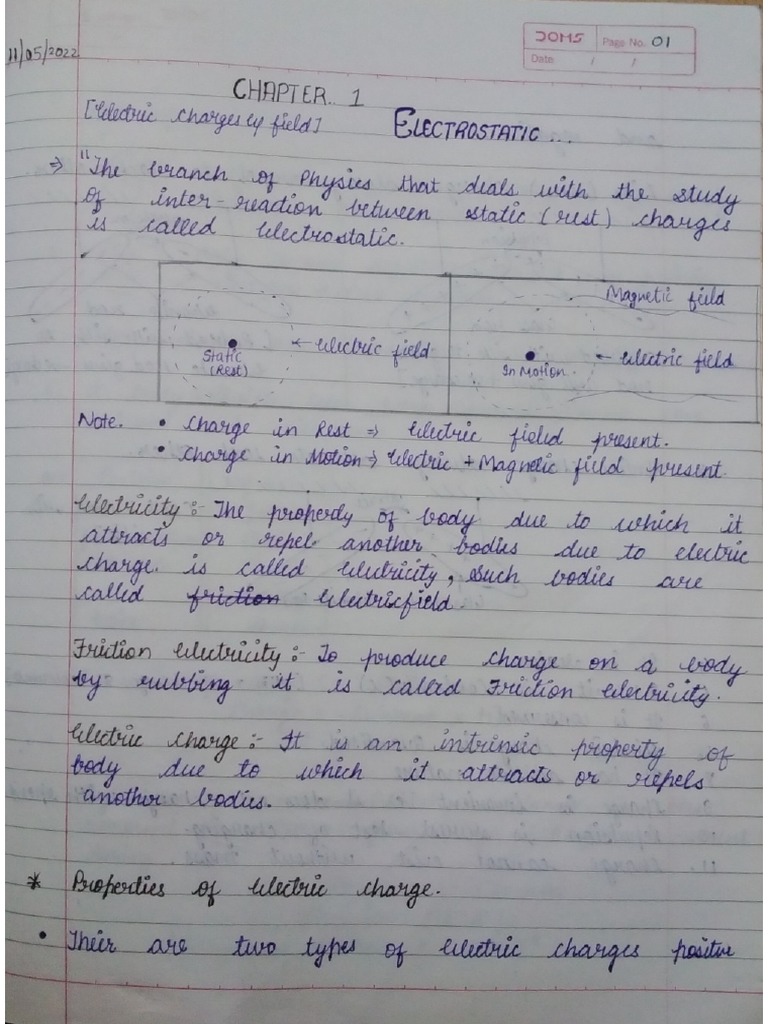 DOMS Page No. 01
Date / /
11/05/2022
CHAPTER.. 1
[Electric charges by field] ELECTROSTATIC ...
⇒ "The branch of Physics that deals with the study
of inter-reaction between static (rest) charges
is called Electrostatic.
Magnetic field
Static
(Rest)
← electric field
In Motion
← electric field
Note. • Charge in Rest ⇒ Electric field present.
• Charge in Motion ⇒ Electric + Magnetic field present
Electricity :- The property of body due to which it
attracts or repel another bodies due to electric
charge. is called electricity, such bodies are
called friction electricfield.
Friction electricity :- To produce charge on a body
by rubbing it is called Friction electricity.
Electric charge :- It is an intrinsic property of
body due to which it attracts or repels
another bodies.
* Properties of electric charge.
• Their are two types of electric charges positive